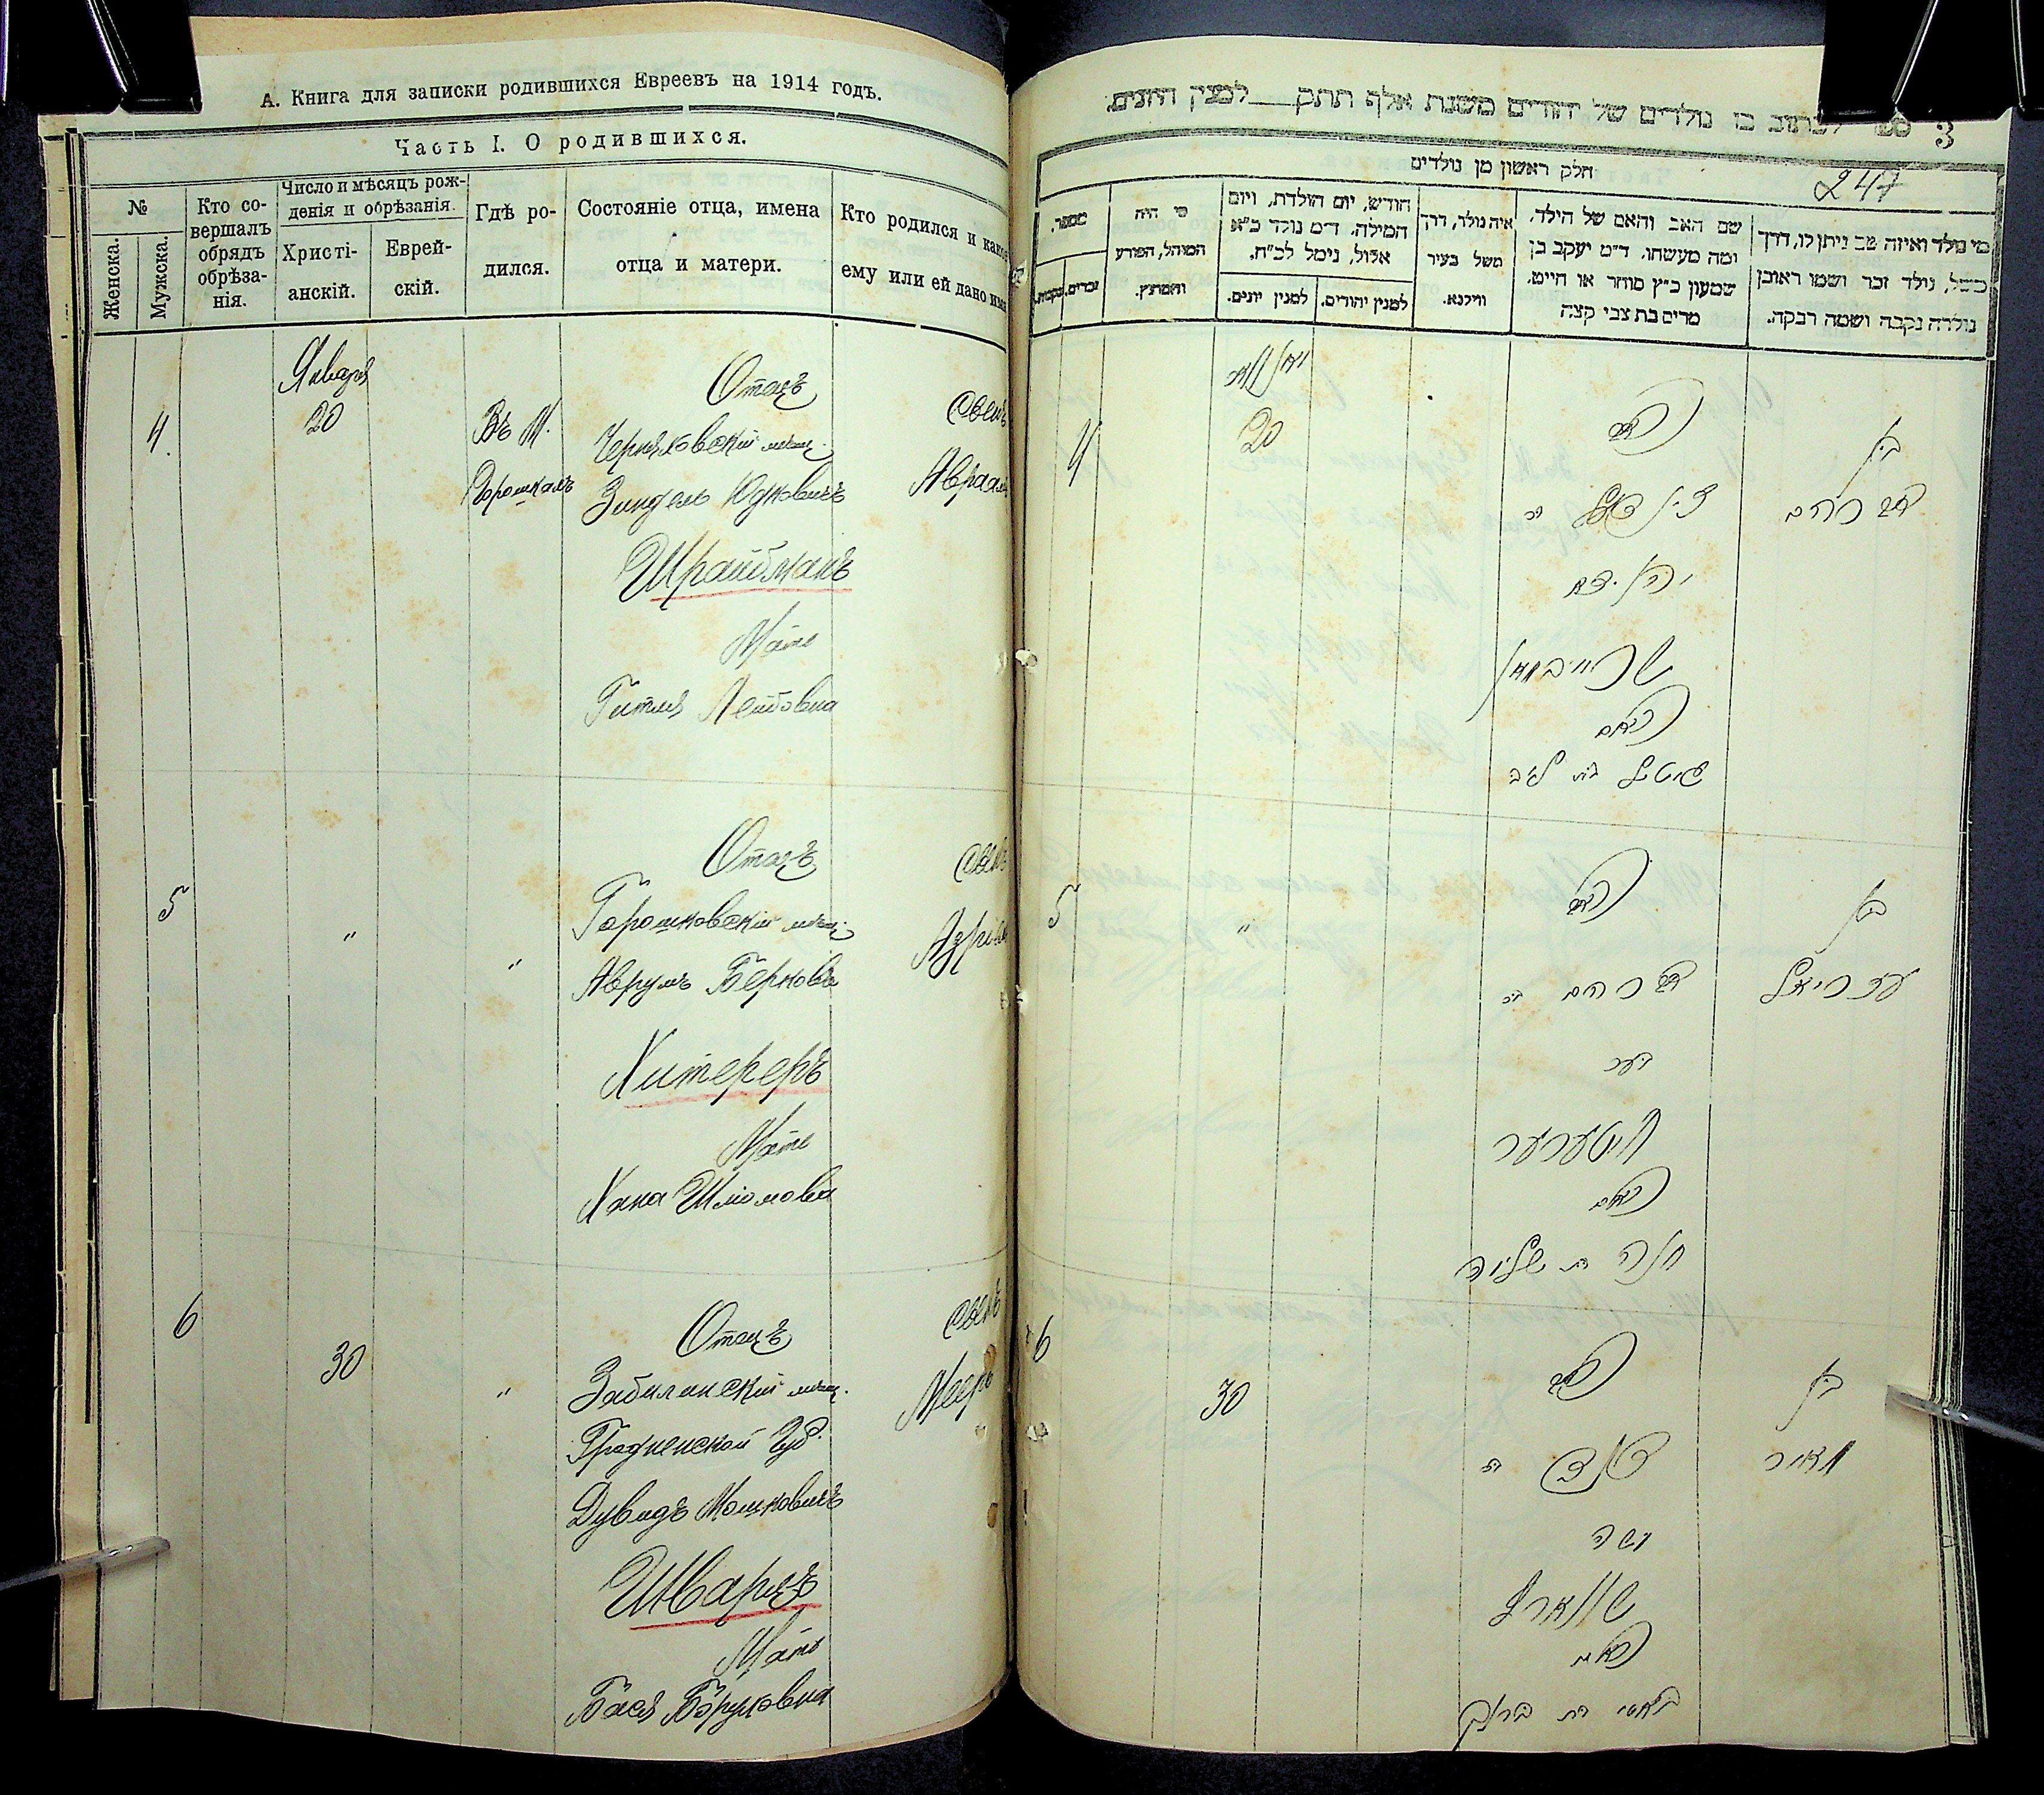 А. Книга для записки родившихся Евреевъ на 1914 годъ.
Часть I. О родившихся.
№
Женска.
Мужска.
Кто со-
вершалъ
обрядъ
обрѣза-
нія.
Число и мѣсяцъ рож-
денія и обрѣзанія.
Христі-
анскій.
Еврей-
скій.
Гдѣ ро-
дился.
Состояніе отца, имена
отца и матери.
Кто родился и какое
ему или ей дано имя
4.
Января
20
Въ М.
Горошкахъ
Отецъ
Черняховскій мѣщ.
Зиндель Юдковичъ
Шрайбманъ
Мать
Гитля Лейбовна
Сынъ
Авраамъ
5
"
"
Отецъ
Горошковскій мѣщ.
Аврумъ Берковъ
Хитереръ
Мать
Хана Шліомова
Сынъ
Азріель
6
30
"
Отецъ
Заблинскій мѣщ.
Гродненской Губ.
Дувидъ Мошковичъ
Шварцъ
Мать
Бася Боруховна
Сынъ
Мееръ
ספר לכתוב בו נולדים של יהודים משנת אלף תתק למנין היונים.
3
247
חלק ראשון מן נולדים
מספר,
נקבות.
זכרים.
מי היה
המוהל, הפורע
והמוצץ.
חודש, יום הולדת, ויום
המילה. ד״מ נולד כ״א
אלול, נימל לכ״ח.
למנין יונים.
למנין יהודים.
איה נולד, דרך
משל בעיר
ווילנא.
שם האב והאם של הילד.
ומה מעשהו. ד״מ יעקב בן
שמעון כ״ץ סוחר או חייט.
מרים בת צבי קצה
מי נולד ואיזה שם ניתן לו, דרך
משל, נולד זכר ושמו ראובן
נולדה נקבה ושמה רבקה.
4
יאנואר
20
האב
זינדעל ב״ר
יהודא
שרייבמאן
האם
גיטל בת ליב
בן
אברהם
5
"
האב
אברהם ב״ר
בער
חיטערער
האם
חנה בת שלמה
בן
עזריאל
6
30
האב
דוד ב״ר
משה
שווארץ
האם
באסי בת ברוך
בן
מאיר